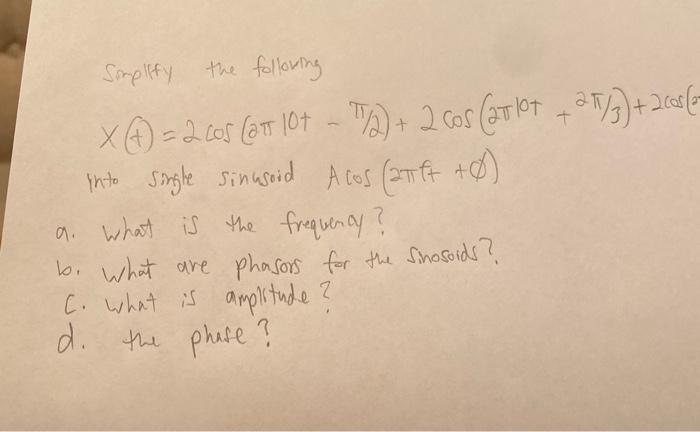 Simplify the following
X(t) = 2 cos (2π 10t - π/2) + 2 cos (2π10t + 2π/3) + 2 cos(2
into single sinusoid A cos (2πft + ∅)
a. what is the frequency?
b. what are phasors for the sinosoids?
C. what is amplitude?
d. the phase?